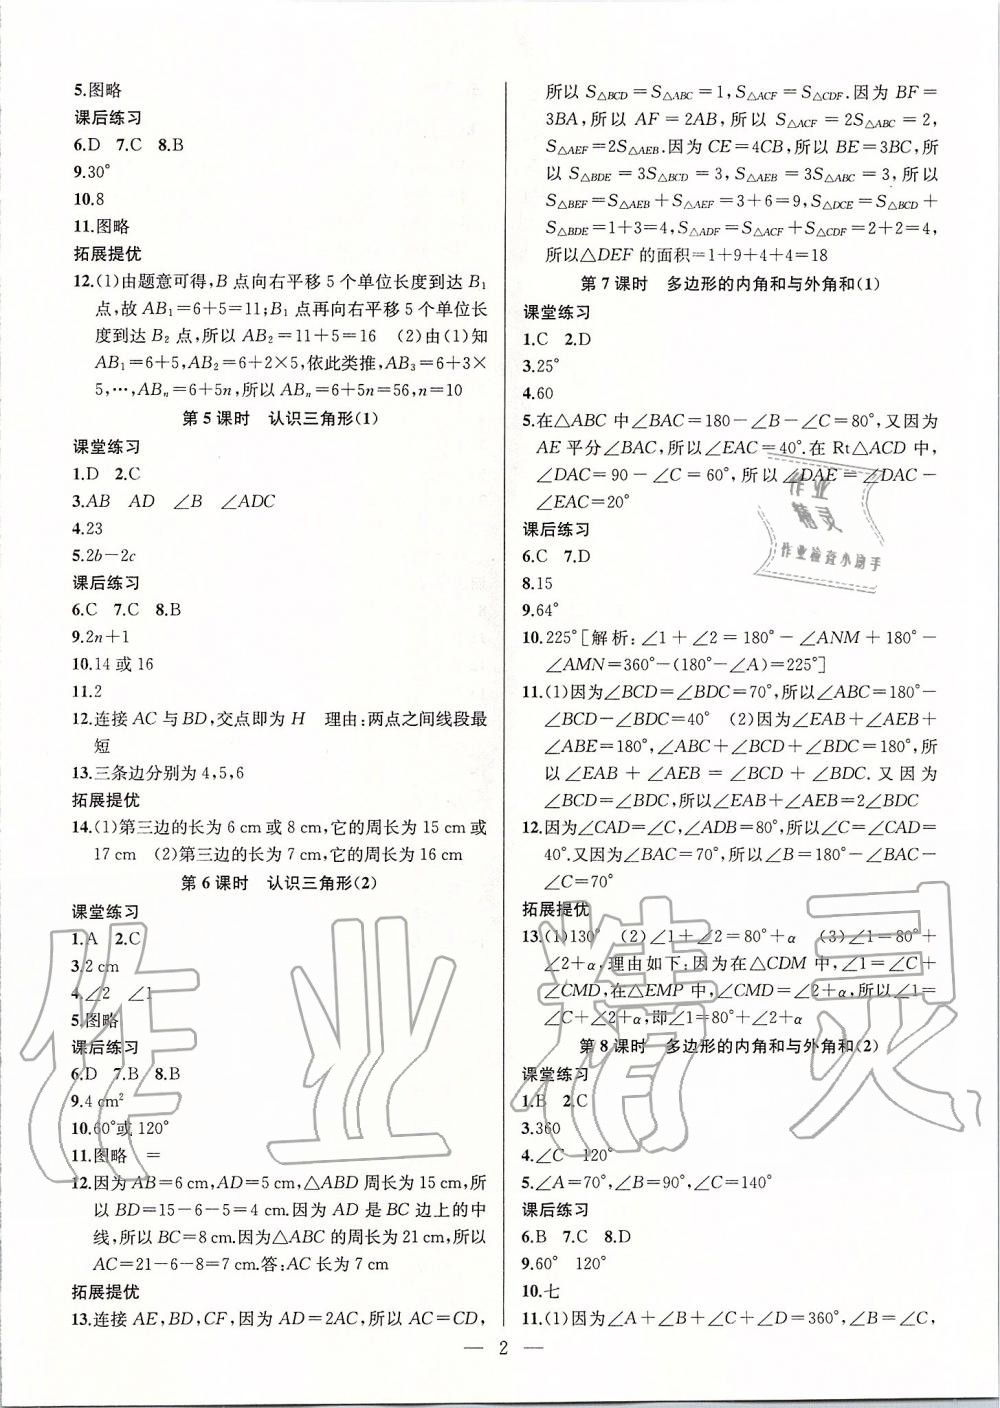 5.图略
课后练习
6.D 7.C 8.B
9.30°
10.8
11.图略
拓展提优
12.(1)由题意可得,B点向右平移5个单位长度到达B₁
点,故AB₁=6+5=11;B₁点再向右平移5个单位长
度到达B₂点,所以AB₂=11+5=16 (2)由(1)知
AB₁=6+5,AB₂=6+2×5,依此类推,AB₃=6+3×
5,…,ABₙ=6+5n,所以ABₙ=6+5n=56,n=10
第5课时 认识三角形(1)
课堂练习
1.D 2.C
3.AB AD ∠B ∠ADC
4.23
5.2b-2c
课后练习
6.C 7.C 8.B
9.2n+1
10.14或16
11.2
12.连接AC与BD,交点即为H 理由:两点之间线段最
短
13.三条边分别为4,5,6
拓展提优
14.(1)第三边的长为6 cm或8 cm,它的周长为15 cm或
17 cm (2)第三边的长为7 cm,它的周长为16 cm
第6课时 认识三角形(2)
课堂练习
1.A 2.C
3.2 cm
4.∠2 ∠1
5.图略
课后练习
6.D 7.B 8.B
9.4 cm²
10.60°或120°
11.图略 =
12.因为AB=6 cm,AD=5 cm,△ABD周长为15 cm,所
以BD=15-6-5=4 cm.因为AD是BC边上的中
线,所以BC=8 cm.因为△ABC的周长为21 cm,所以
AC=21-6-8=7 cm.答:AC长为7 cm
拓展提优
13.连接AE,BD,CF,因为AD=2AC,所以AC=CD,
所以S△BCD=S△ABC=1,S△ACF=S△CDF.因为BF=
3BA,所以AF=2AB,所以S△ACF=2S△ABC=2,
S△AEF=2S△AEB.因为CE=4CB,所以BE=3BC,所
以S△BDE=3S△BCD=3,S△AEB=3S△ABC=3,所以
S△BEF=S△AEB+S△AEF=3+6=9,S△DCE=S△BCD+
S△BDE=1+3=4,S△ADF=S△ACF+S△CDF=2+2=4,
所以△DEF的面积=1+9+4+4=18
第7课时 多边形的内角和与外角和(1)
课堂练习
1.C 2.D
3.25°
4.60
5.在△ABC中∠BAC=180-∠B-∠C=80°,又因为
AE平分∠BAC,所以∠EAC=40°.在Rt△ACD中,
∠DAC=90-∠C=60°,所以∠DAE=∠DAC-
∠EAC=20°
课后练习
6.C 7.D
8.15
9.64°
10.225°[解析:∠1+∠2=180°-∠ANM+180°-
∠AMN=360°-(180°-∠A)=225°]
11.(1)因为∠BCD=∠BDC=70°,所以∠ABC=180°-
∠BCD-∠BDC=40° (2)因为∠EAB+∠AEB+
∠ABE=180°,∠ABC+∠BCD+∠BDC=180°,所
以∠EAB+∠AEB=∠BCD+∠BDC.又因为
∠BCD=∠BDC,所以∠EAB+∠AEB=2∠BDC
12.因为∠CAD=∠C,∠ADB=80°,所以∠C=∠CAD=
40°.又因为∠BAC=70°,所以∠B=180°-∠BAC-
∠C=70°
拓展提优
13.(1)130° (2)∠1+∠2=80°+α (3)∠1=80°+
∠2+α,理由如下:因为在△CDM中,∠1=∠C+
∠CMD,在△EMP中,∠CMD=∠2+α,所以∠1=
∠C+∠2+α,即∠1=80°+∠2+α
第8课时 多边形的内角和与外角和(2)
课堂练习
1.B 2.C
3.360
4.∠C 120°
5.∠A=70°,∠B=90°,∠C=140°
课后练习
6.B 7.C 8.D
9.60° 120°
10.七
11.(1)因为∠A+∠B+∠C+∠D=360°,∠B=∠C,
— 2 —
作业
精灵
作业检查小助手
作业精灵